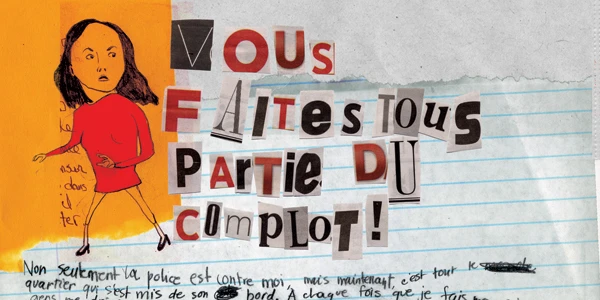 VOUS
FAITES TOUS
PARTIE DU
COMPLOT!
Non seulement la police est contre moi, mais maintenant, c'est tout le
quartier qui s'est mis de son bord. À chaque fois que je fais